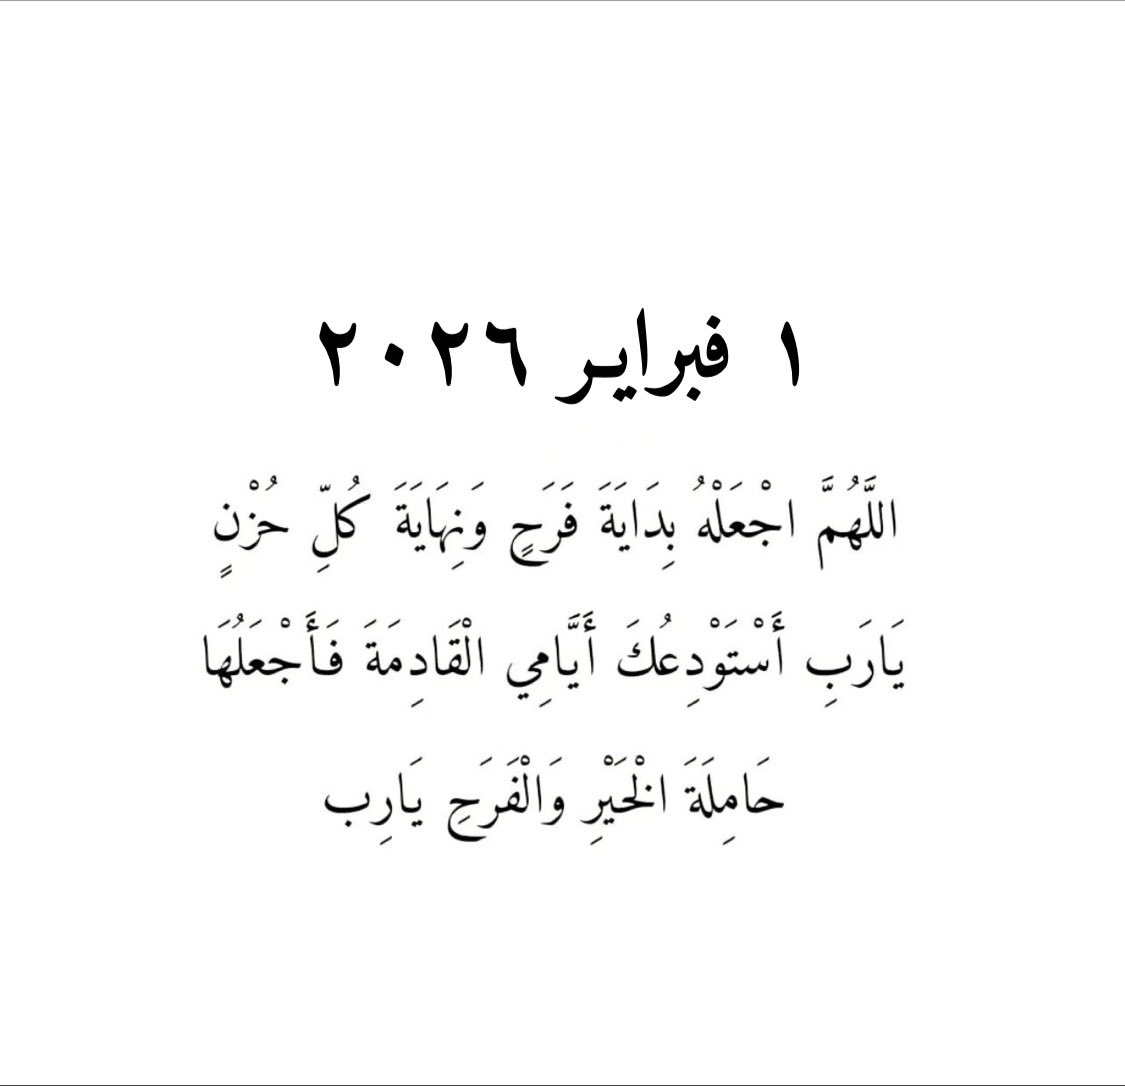 ١ فبراير ٢٠٢٦
اللَّهُمَّ اجْعَلْهُ بِدَايَةَ فَرَحٍ وَنِهَايَةَ كُلِّ حُزْنٍ
يَارَبِ أَسْتَوْدِعُكَ أَيَّامِي الْقَادِمَةَ فَأَجْعَلُهَا
حَامِلَةَ الْخَيْرِ وَالْفَرَحِ يَارِب